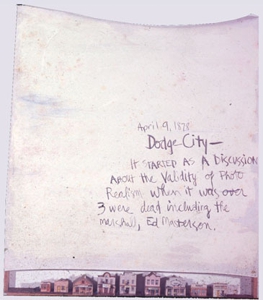 April 9, 1878
Dodge City—
It started as a discussion
about the validity of photo
realism. When it was over
3 were dead including the
marshall, Ed Masterson.